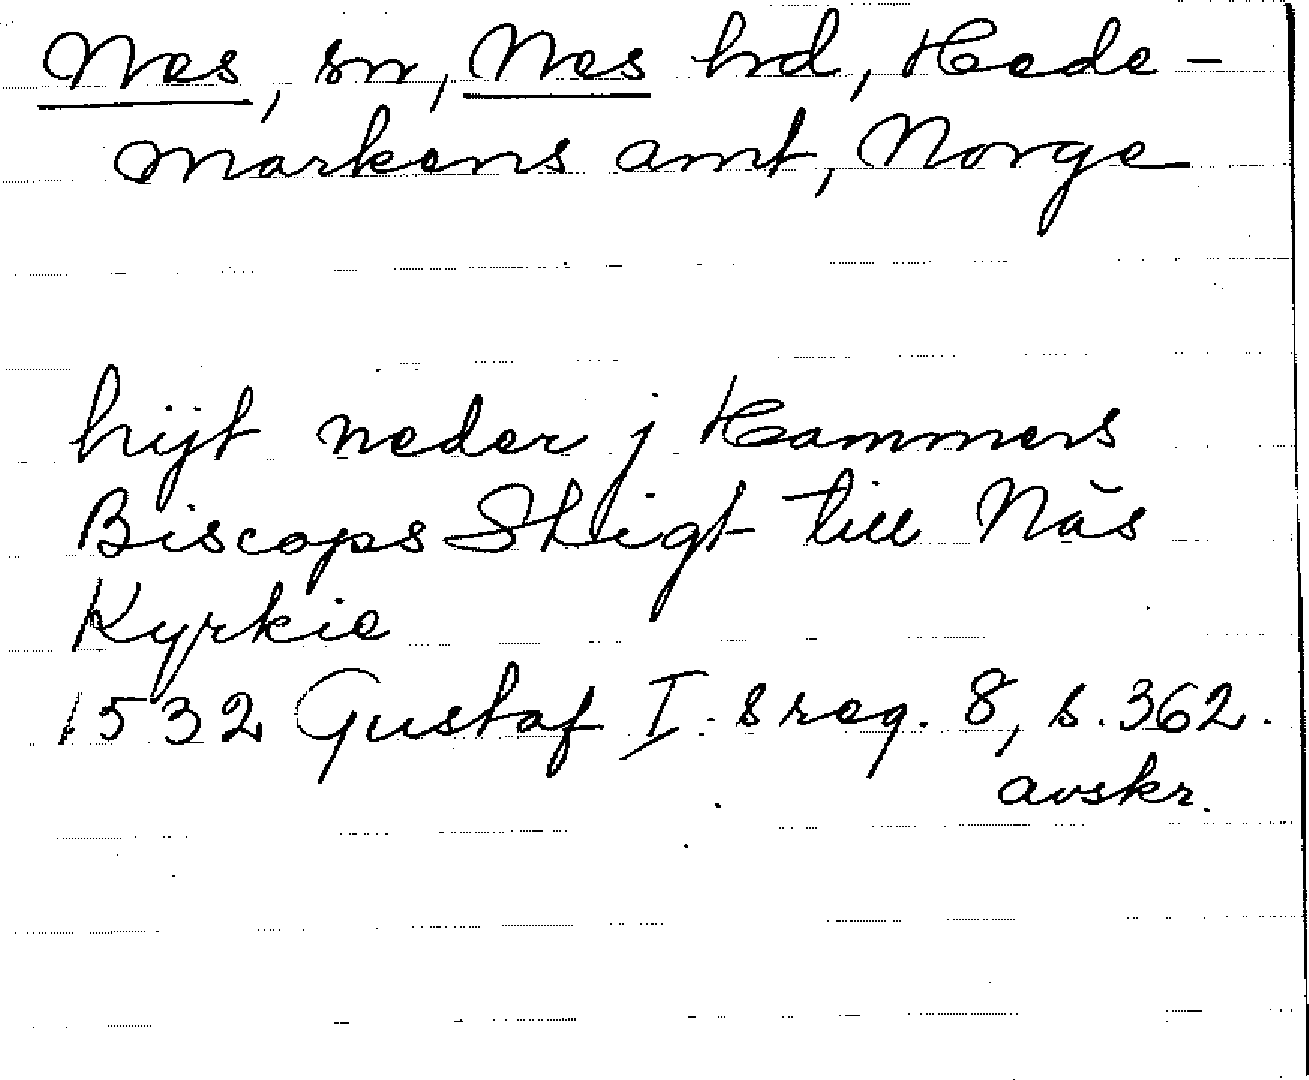 Nes, sn, Nes hd, Hede-
markens amt, Norge
hijt neder j Hammers
Biscops Stigt till Näs
Kyrkie
1532 Gustaf I.s reg. 8, s. 362.
avskr.